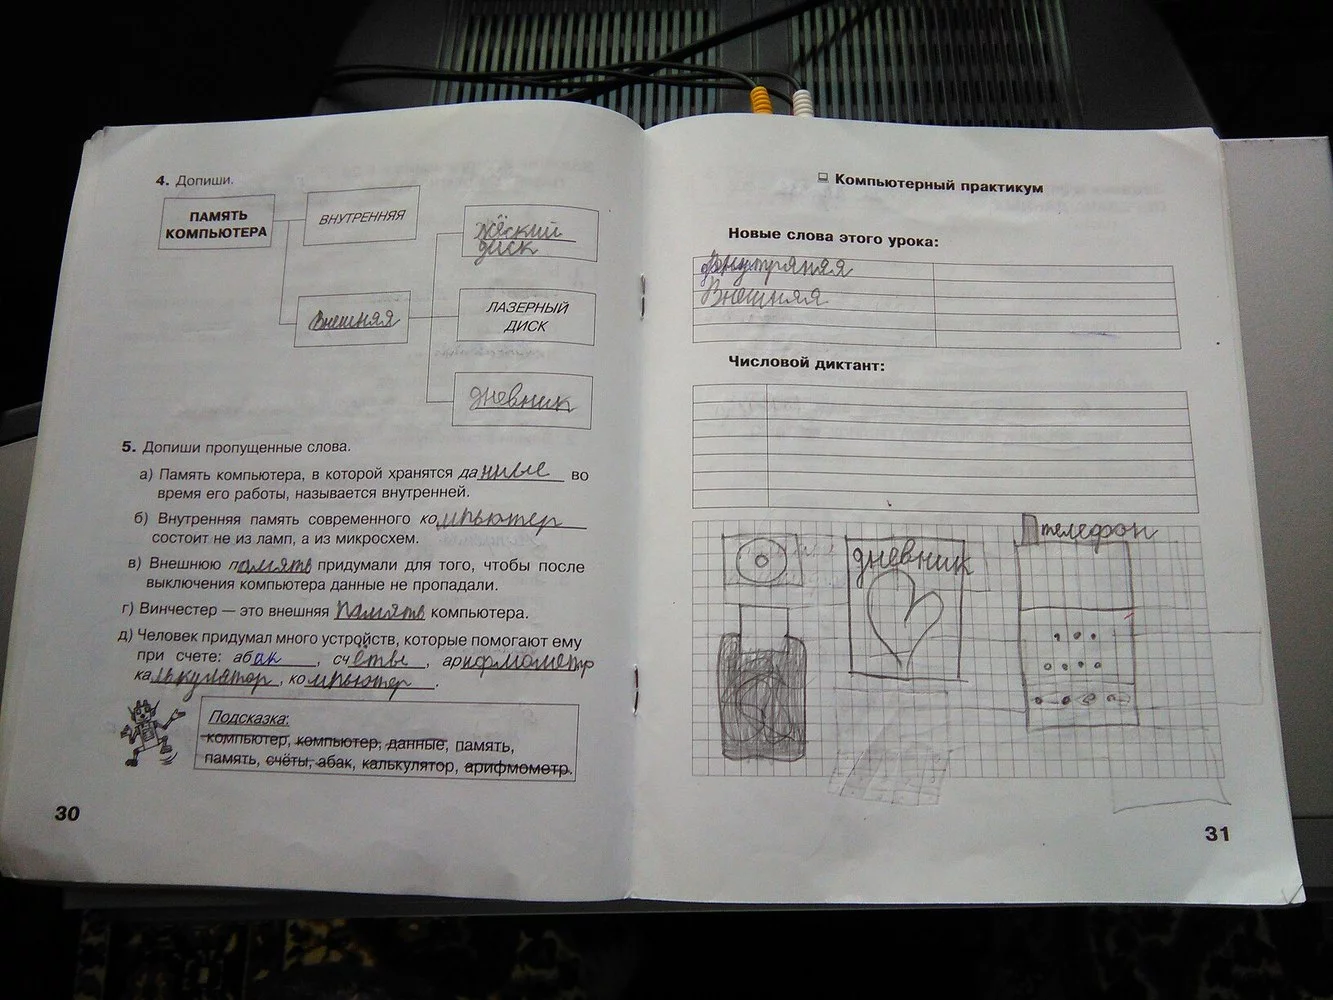 4. Допиши.
ПАМЯТЬ
КОМПЬЮТЕРА
ВНУТРЕННЯЯ
жёский
диск
Внешняя
ЛАЗЕРНЫЙ
ДИСК
дневник
5. Допиши пропущенные слова.
а) Память компьютера, в которой хранятся данные во
время его работы, называется внутренней.
б) Внутренняя память современного компьютер
состоит не из ламп, а из микросхем.
в) Внешнюю память придумали для того, чтобы после
выключения компьютера данные не пропадали.
г) Винчестер — это внешняя память компьютера.
д) Человек придумал много устройств, которые помогают ему
при счете: абак, счёты, арифмометр
калькулятор, компьютер.
Подсказка:
компьютер, компьютер, данные, память,
память, счёты, абак, калькулятор, арифмометр.
30
Компьютерный практикум
Новые слова этого урока:
Внутряняя
Внешняя
Числовой диктант:
дневник
телефон
31